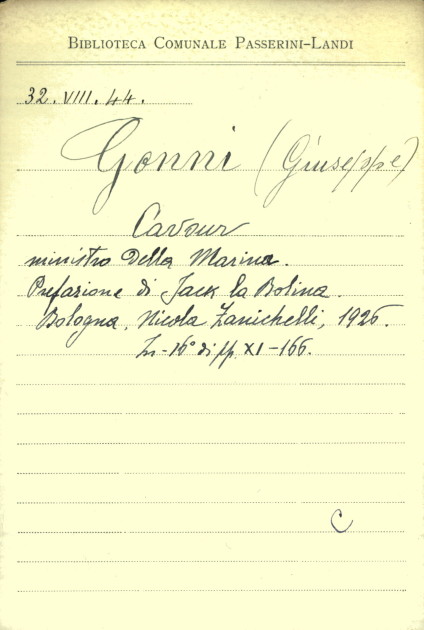 BIBLIOTECA COMUNALE PASSERINI-LANDI
32.VIII.44.
Gonni (Giuseppe)
Cavour
ministro della Marina.
Prefazione di Jack la Bolina.
Bologna, Nicola Zanichelli, 1926.
In-16° di pp. XI-166.
C